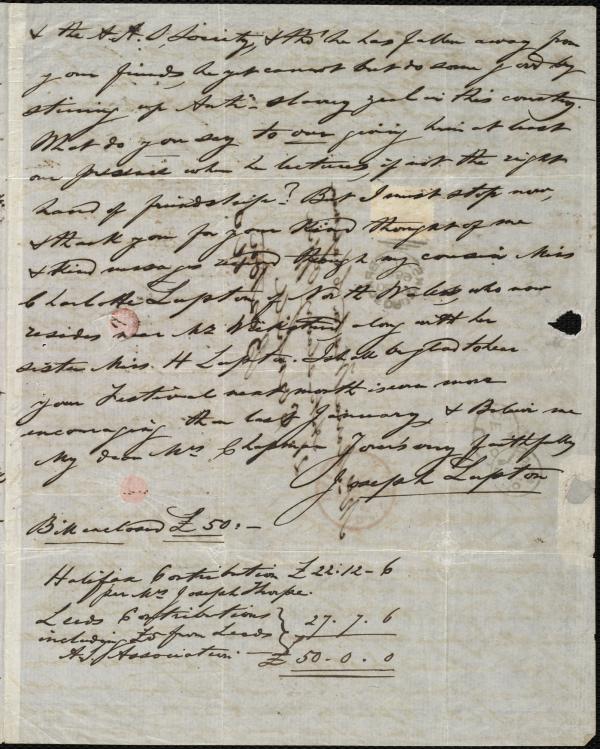 & the A.A.S. Society, & tho' he has fallen away from
your friends, he yet cannot but do some good by
stirring up Anti-slavery zeal in this country.
What do you say to our giving him at least
our presence when he lectures if not the right
hand of friendship? But I must stop now,
& thank you for your kind thought of me
& kind messages through my cousin Miss
Charlotte Lupton of North Wales, who now
resides near Mr along with her
sister Miss H Lupton. I shall be glad to hear
your Festival next month is even more
encouraging than last January, & Believe me
My dear Mrs Chapman Yours very faithfully
Joseph Lupton
Bill enclosed £50:-
Halifax Contribution £22:12-6
per Mrs Joseph Thorpe.
Leeds Contributions } 27. 7. 6
including £5 from Leeds
A.S. Association £ 50-0.0